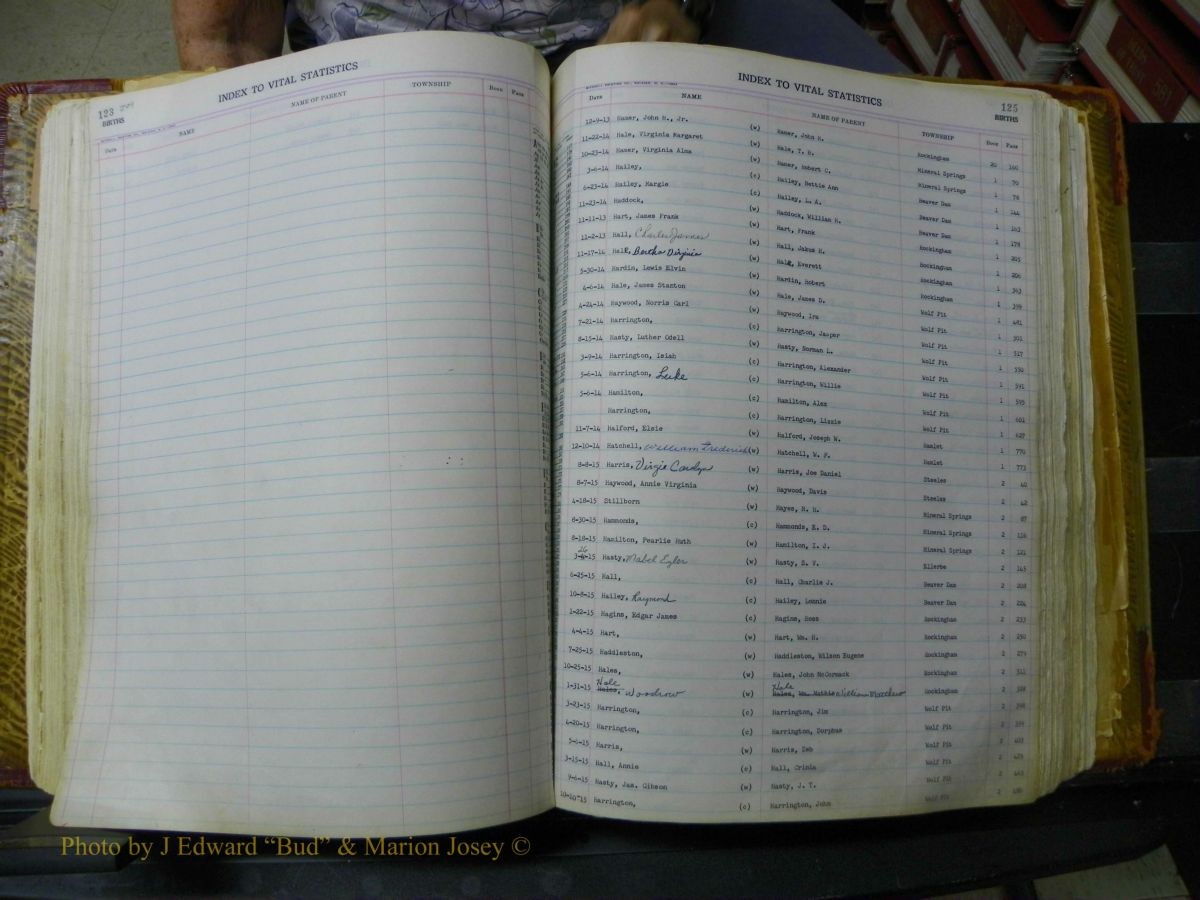 123
BIRTHS
INDEX TO VITAL STATISTICS
Date NAME NAME OF PARENT TOWNSHIP Book Page
INDEX TO VITAL STATISTICS
125
BIRTHS
Date NAME NAME OF PARENT TOWNSHIP Book Page
12-9-13 Haner, John H., Jr. (w) Haner, John H. Rockingham
11-22-14 Hale, Virginia Margaret (w) Hale, T. B. Mineral Springs 1 70
10-23-14 Haner, Virginia Alma (w) Haner, Robert C. Mineral Springs 1 78
3-6-14 Hailey, (c) Hailey, Bettie Ann Beaver Dam 1 144
6-23-14 Hailey, Margie (c) Hailey, L. A. Beaver Dam 1 163
11-23-14 Haddock, (w) Haddock, William H. Beaver Dam 1 178
11-11-13 Hart, James Frank (w) Hart, Frank Rockingham 1 205
11-2-13 Hall, Charles James (w) Hall, Jakus H. Rockingham 1 206
11-17-14 Hale, Bertha Virginia (w) Hale, Everett Rockingham 1 343
5-30-14 Hardin, Lewis Elvin (w) Hardin, Robert Rockingham 1 399
4-6-14 Hale, James Stanton (w) Hale, James D. Wolf Pit 1 481
4-24-14 Haywood, Norris Carl (w) Haywood, Ira Wolf Pit 1 501
7-21-14 Harrington, (c) Harrington, Jasper Wolf Pit 1 517
8-15-14 Hasty, Luther Odell (w) Hasty, Norman L. Wolf Pit 1 550
3-9-14 Harrington, Isiah (c) Harrington, Alexander Wolf Pit 1 591
5-6-14 Harrington, Luke (c) Harrington, Willie Wolf Pit 1 595
5-6-14 Hamilton, (c) Hamilton, Alex Wolf Pit 1 601
Harrington, (c) Harrington, Lizzie Wolf Pit 1 627
11-7-14 Halford, Elsie (w) Halford, Joseph W. Hamlet 1 770
12-10-14 Hatchell, William Frederick (w) Hatchell, W. F. Hamlet 1 773
8-8-15 Harris, Virgie Carolyn (w) Harris, Joe Daniel Steeles 2 40
8-7-15 Haywood, Annie Virginia (w) Haywood, Davis Steeles 2 42
4-18-15 Stillborn (w) Hayes, R. H. Mineral Springs 2 87
8-30-15 Hammonds, (c) Hammonds, E. D. Mineral Springs 2 116
8-18-15 Hamilton, Pearlie Ruth (w) Hamilton, I. J. Mineral Springs 2 121
26
3- -15 Hasty, Mabel (w) Hasty, B. V. Ellerbe 2 145
6-25-15 Hall, (c) Hall, Charlie J. Beaver Dam 2 208
10-8-15 Hailey, Raymond (c) Hailey, Lonnie Beaver Dam 2 224
1-22-15 Hagins, Edgar James (c) Hagins, Ross Rockingham 2 233
4-4-15 Hart, (w) Hart, Wm. H. Rockingham 2 250
7-25-15 Haddleston, (w) Haddleston, Wilson Eugene Rockingham 2 274
10-25-15 Hales, (w) Hales, John McCormack Rockingham 2 311
Hale Hale
1-31-15 Hales, Woodrow (w) Hales, Wm. Mathis William Matthew Rockingham 2 328
3-23-15 Harrington, (c) Harrington, Jim Wolf Pit 2
4-20-15 Harrington, (c) Harrington, Dorphus Wolf Pit 2
5-6-15 Harris, (w) Harris, Zeb Wolf Pit 2
3-15-15 Hall, Annie (c) Hall, Crinia Wolf Pit 2
9-6-15 Hasty, Jas. Gibson (w) Hasty, J. T. Wolf Pit 2
10-10-15 Harrington, (c) Harrington, John Wolf Pit 2
Photo by J Edward “Bud” & Marion Josey ©